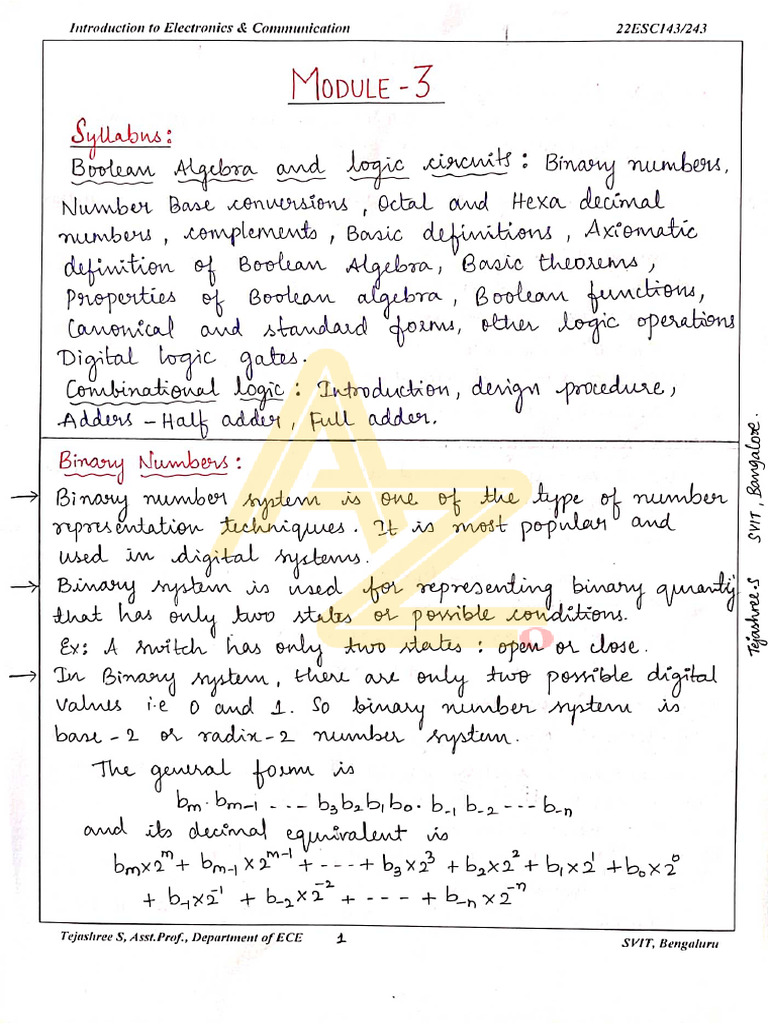 Introduction to Electronics & Communication 22ESC143/243
MODULE - 3
Syllabus:
Boolean Algebra and logic circuits : Binary numbers,
Number Base conversions, Octal and Hexa decimal
numbers, complements, Basic definitions, Axiomatic
definition of Boolean Algebra, Basic theorems,
Properties of Boolean algebra, Boolean functions,
Canonical and standard forms, other logic operations
Digital logic gates.
Combinational logic : Introduction, design procedure,
Adders - Half adder, Full adder.
Binary Numbers :
→ Binary number system is one of the type of number
representation techniques. It is most popular and
used in digital systems.
→ Binary system is used for representing binary quantity
that has only two states or possible conditions.
Ex: A switch has only two states : open or close.
→ In Binary system, there are only two possible digital
values i.e 0 and 1. So binary number system is
base-2 or radix-2 number system.
The general form is
bm.bm-1 --- b3b2b1b0.b-1 b-2 --- b-n
and its decimal equivalent is
bm×2^m + bm-1×2^m-1 + ---- + b3×2^3 + b2×2^2 + b1×2^1 + b0×2^0
+ b-1×2^-1 + b-2×2^-2 + --- + b-n×2^-n
Tejashree.S SVIT, Bangalore.
AZ
Tejashree S, Asst.Prof., Department of ECE 1 SVIT, Bengaluru